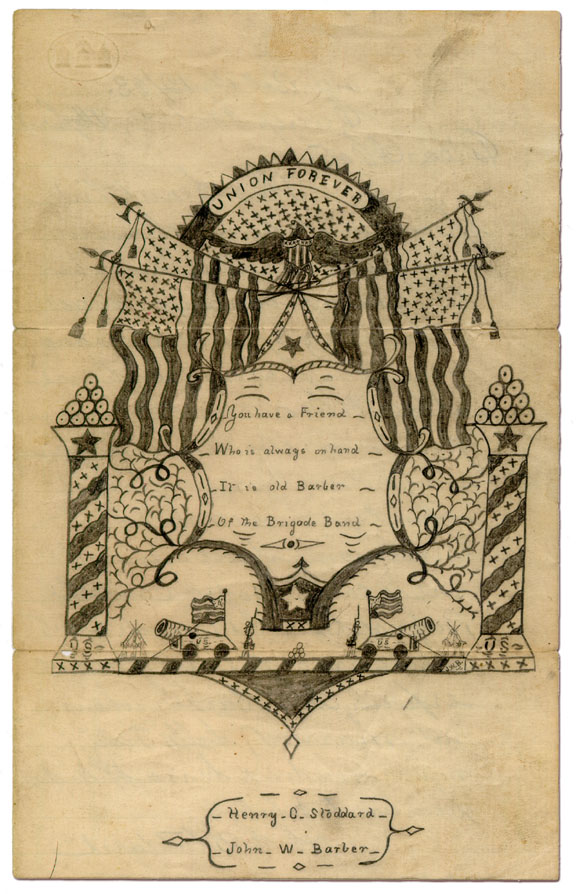 UNION FOREVER
You have a Friend
Who is always on hand
It is old Barber
Of the Brigade Band
U.S.
U.S.
U S
U S
Henry C. Stoddard
John W. Barber